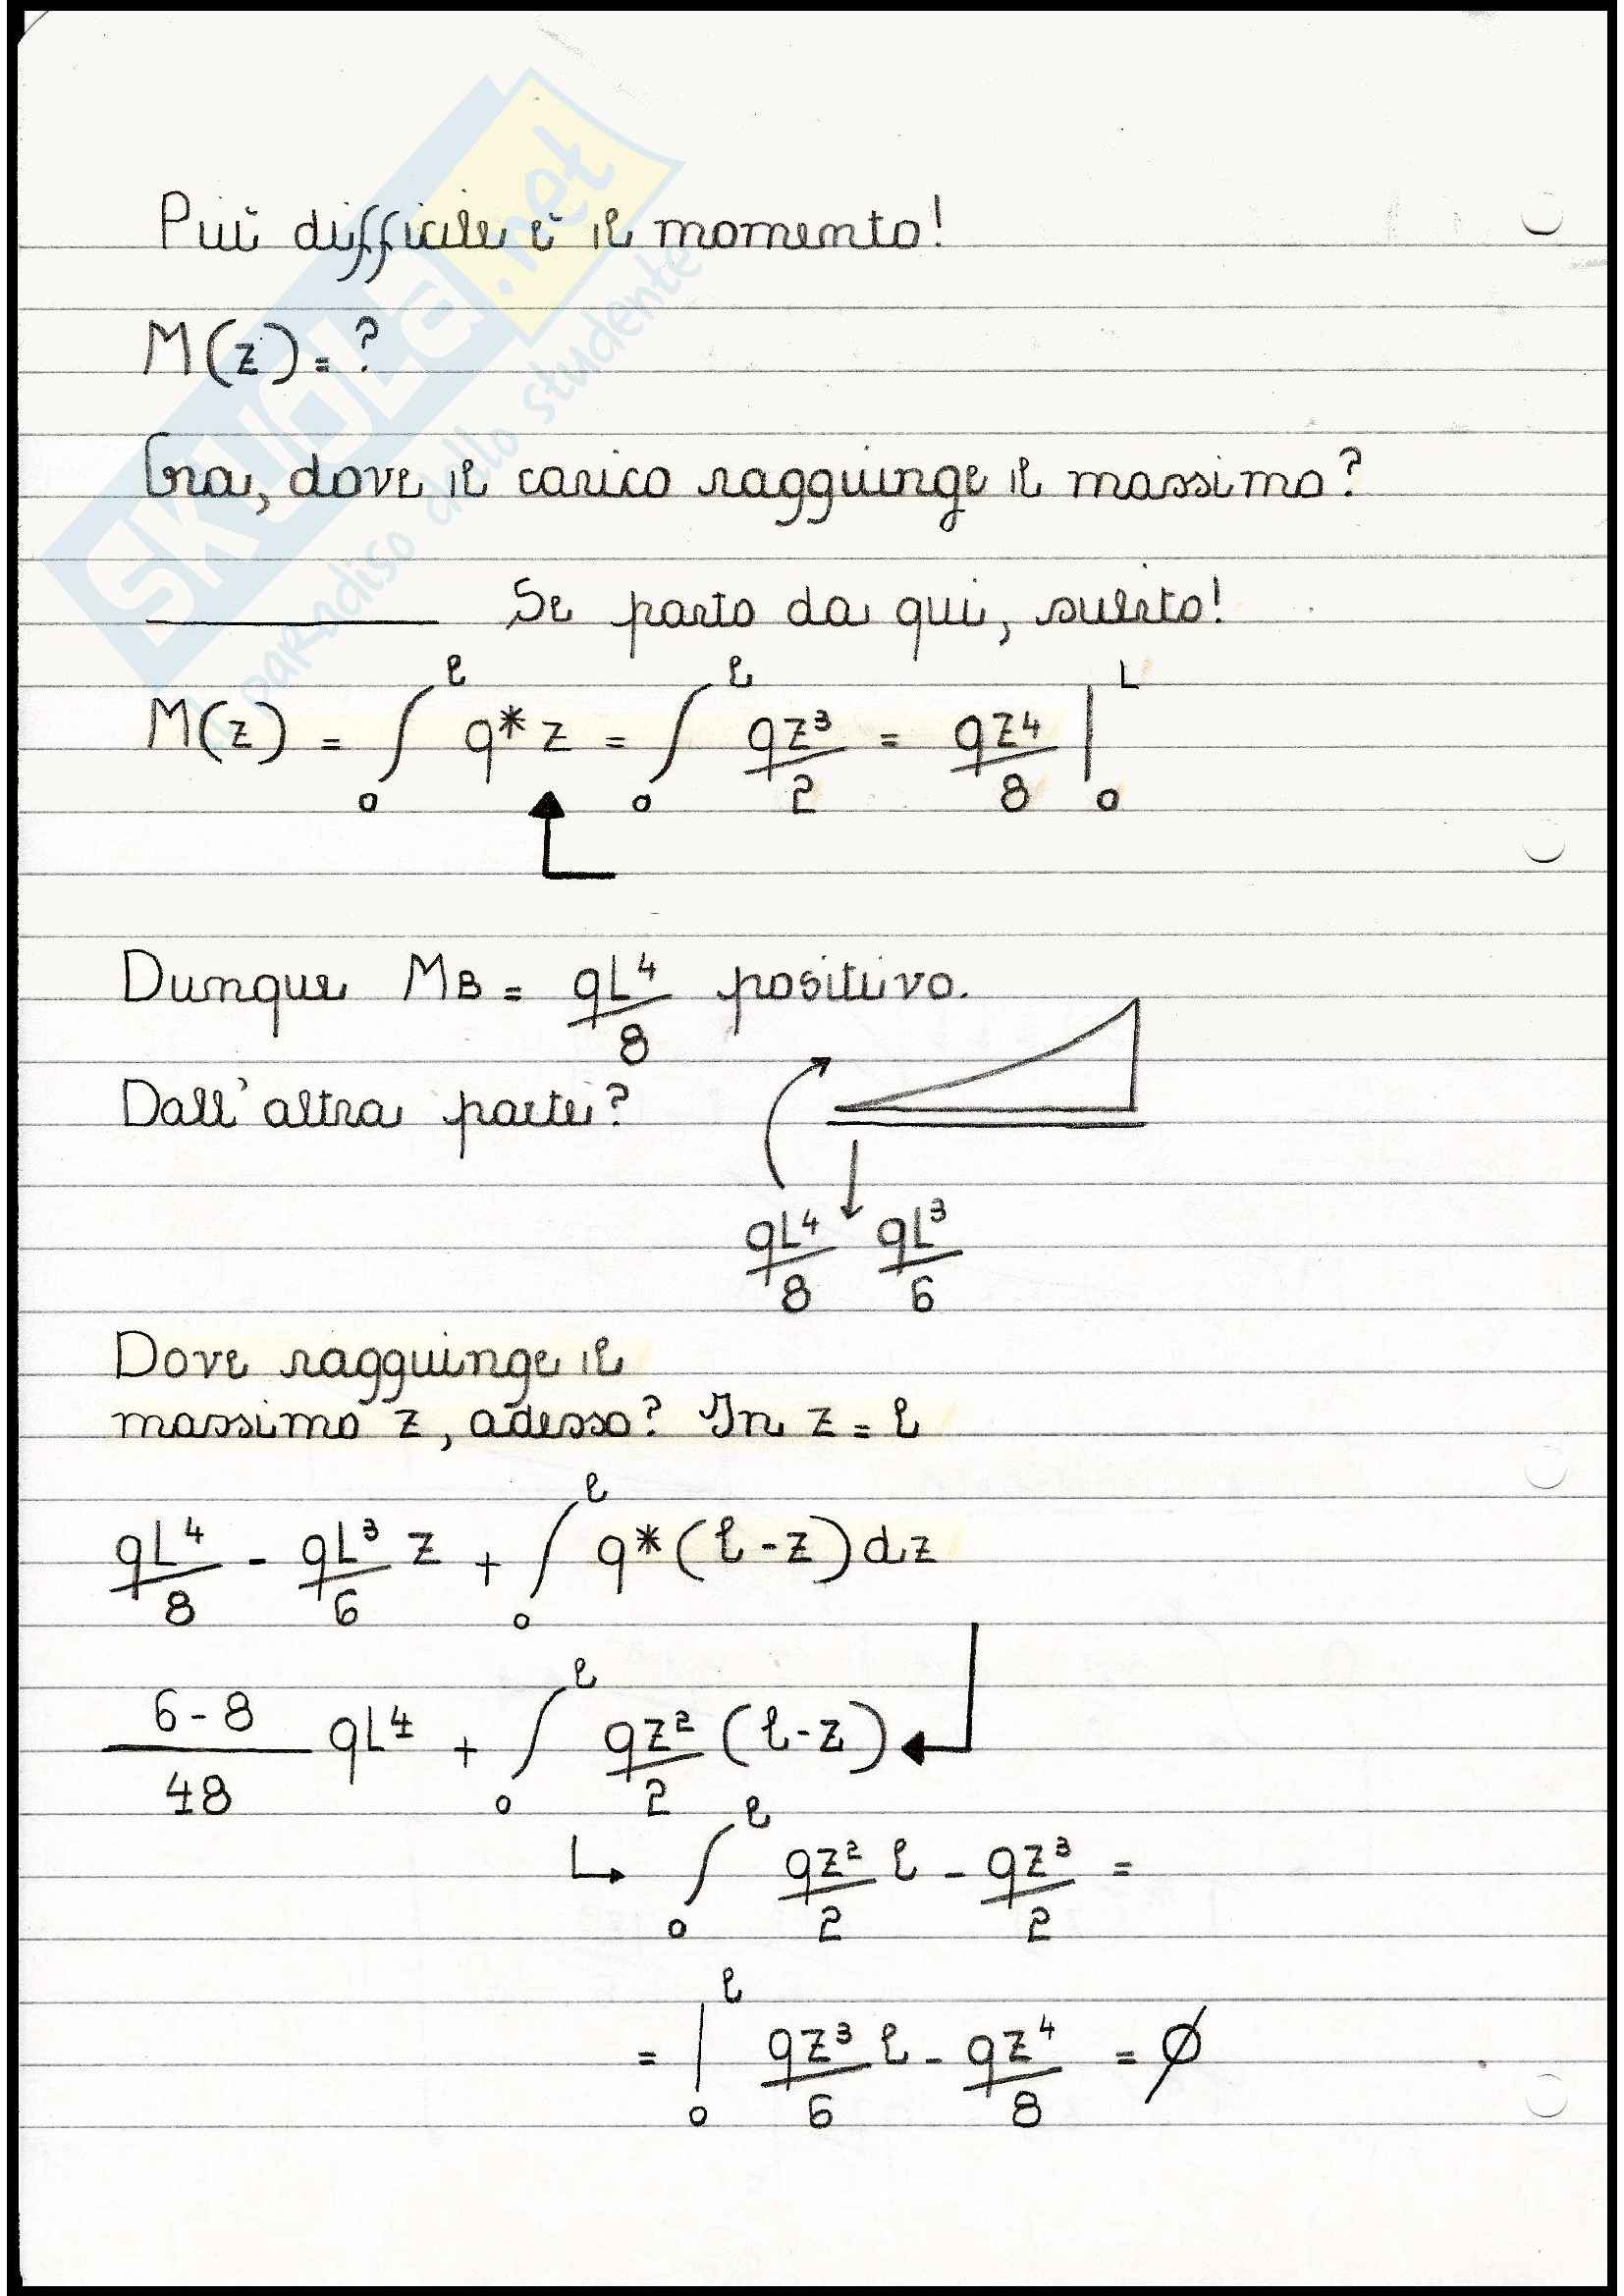 Più difficile è il momento!
M(z) = ?
Ora, dove il carico raggiunge il massimo?
Se parto da qui, subito!
M(z) = ∫₀ˡ q* z = ∫₀ˡ qz³/2 = qz⁴/8 |₀ᴸ
Dunque MB = qL⁴/8 positivo.
Dall'altra parte?
qL⁴/8 qL³/6
Dove raggiunge il
massimo z, adesso? In z = l
qL⁴/8 - qL³/6 z + ∫₀ˡ q* (l - z) dz
6 - 8/48 qL⁴ + ∫₀ˡ qz²/2 (l - z)
∫₀ˡ qz²/2 l - qz³/2 =
= |₀ˡ qz³/6 l - qz⁴/8 = ∅
SKUOLA.net
il paradiso dello studente